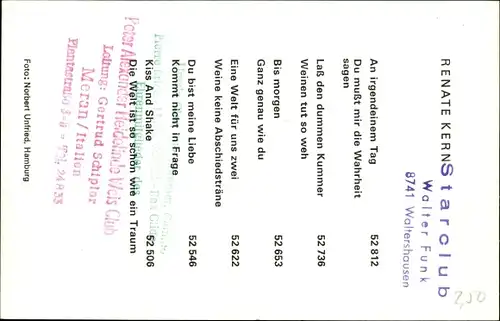 RENATE KERN
Starclub
Walter Funk
8741 Waltershausen
An irgendeinem Tag
Du mußt mir die Wahrheit
sagen 52 812
Laß den dummen Kummer
Weinen tut so weh 52 736
Bis morgen
Ganz genau wie du 52 653
Eine Welt für uns zwei
Weine keine Abschiedsträne 52 622
Du bist meine Liebe
Kommt nicht in Frage 52 546
Kiss And Shake
Die Welt ist so schön wie ein Traum 52 506
Peter Alexander Heidelinde Weis Club
Leitung: Gertrud Schipfer
Meran/Italien
Foto: Norbert Unfried, Hamburg
2,50